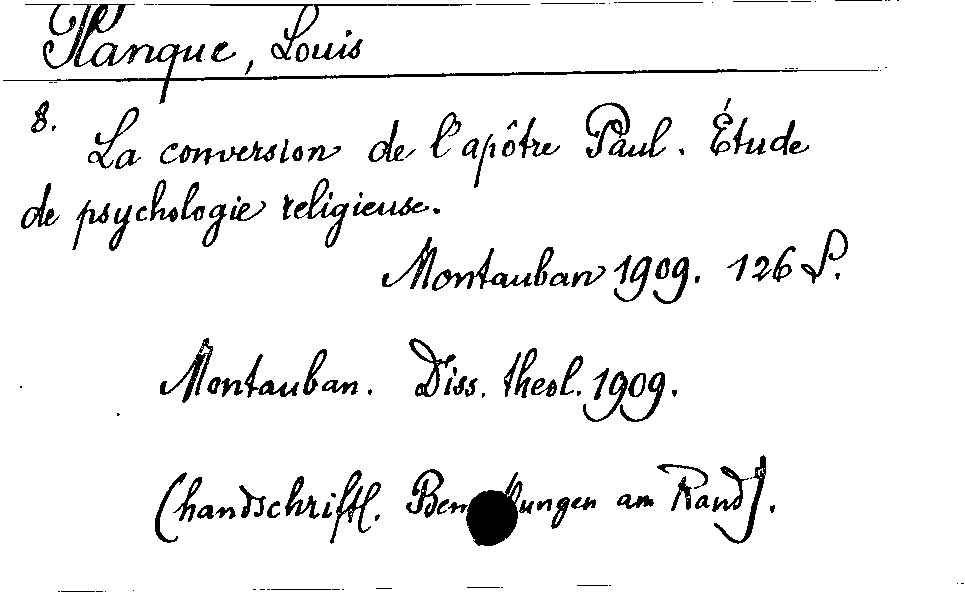 Planque, Louis
8. La conversion de l'apôtre Paul. Étude
de psychologie religieuse.
Montauban 1909. 126 S.
Montauban. Diss. theol. 1909.
(handschriftl. Bemerkungen am Rand).